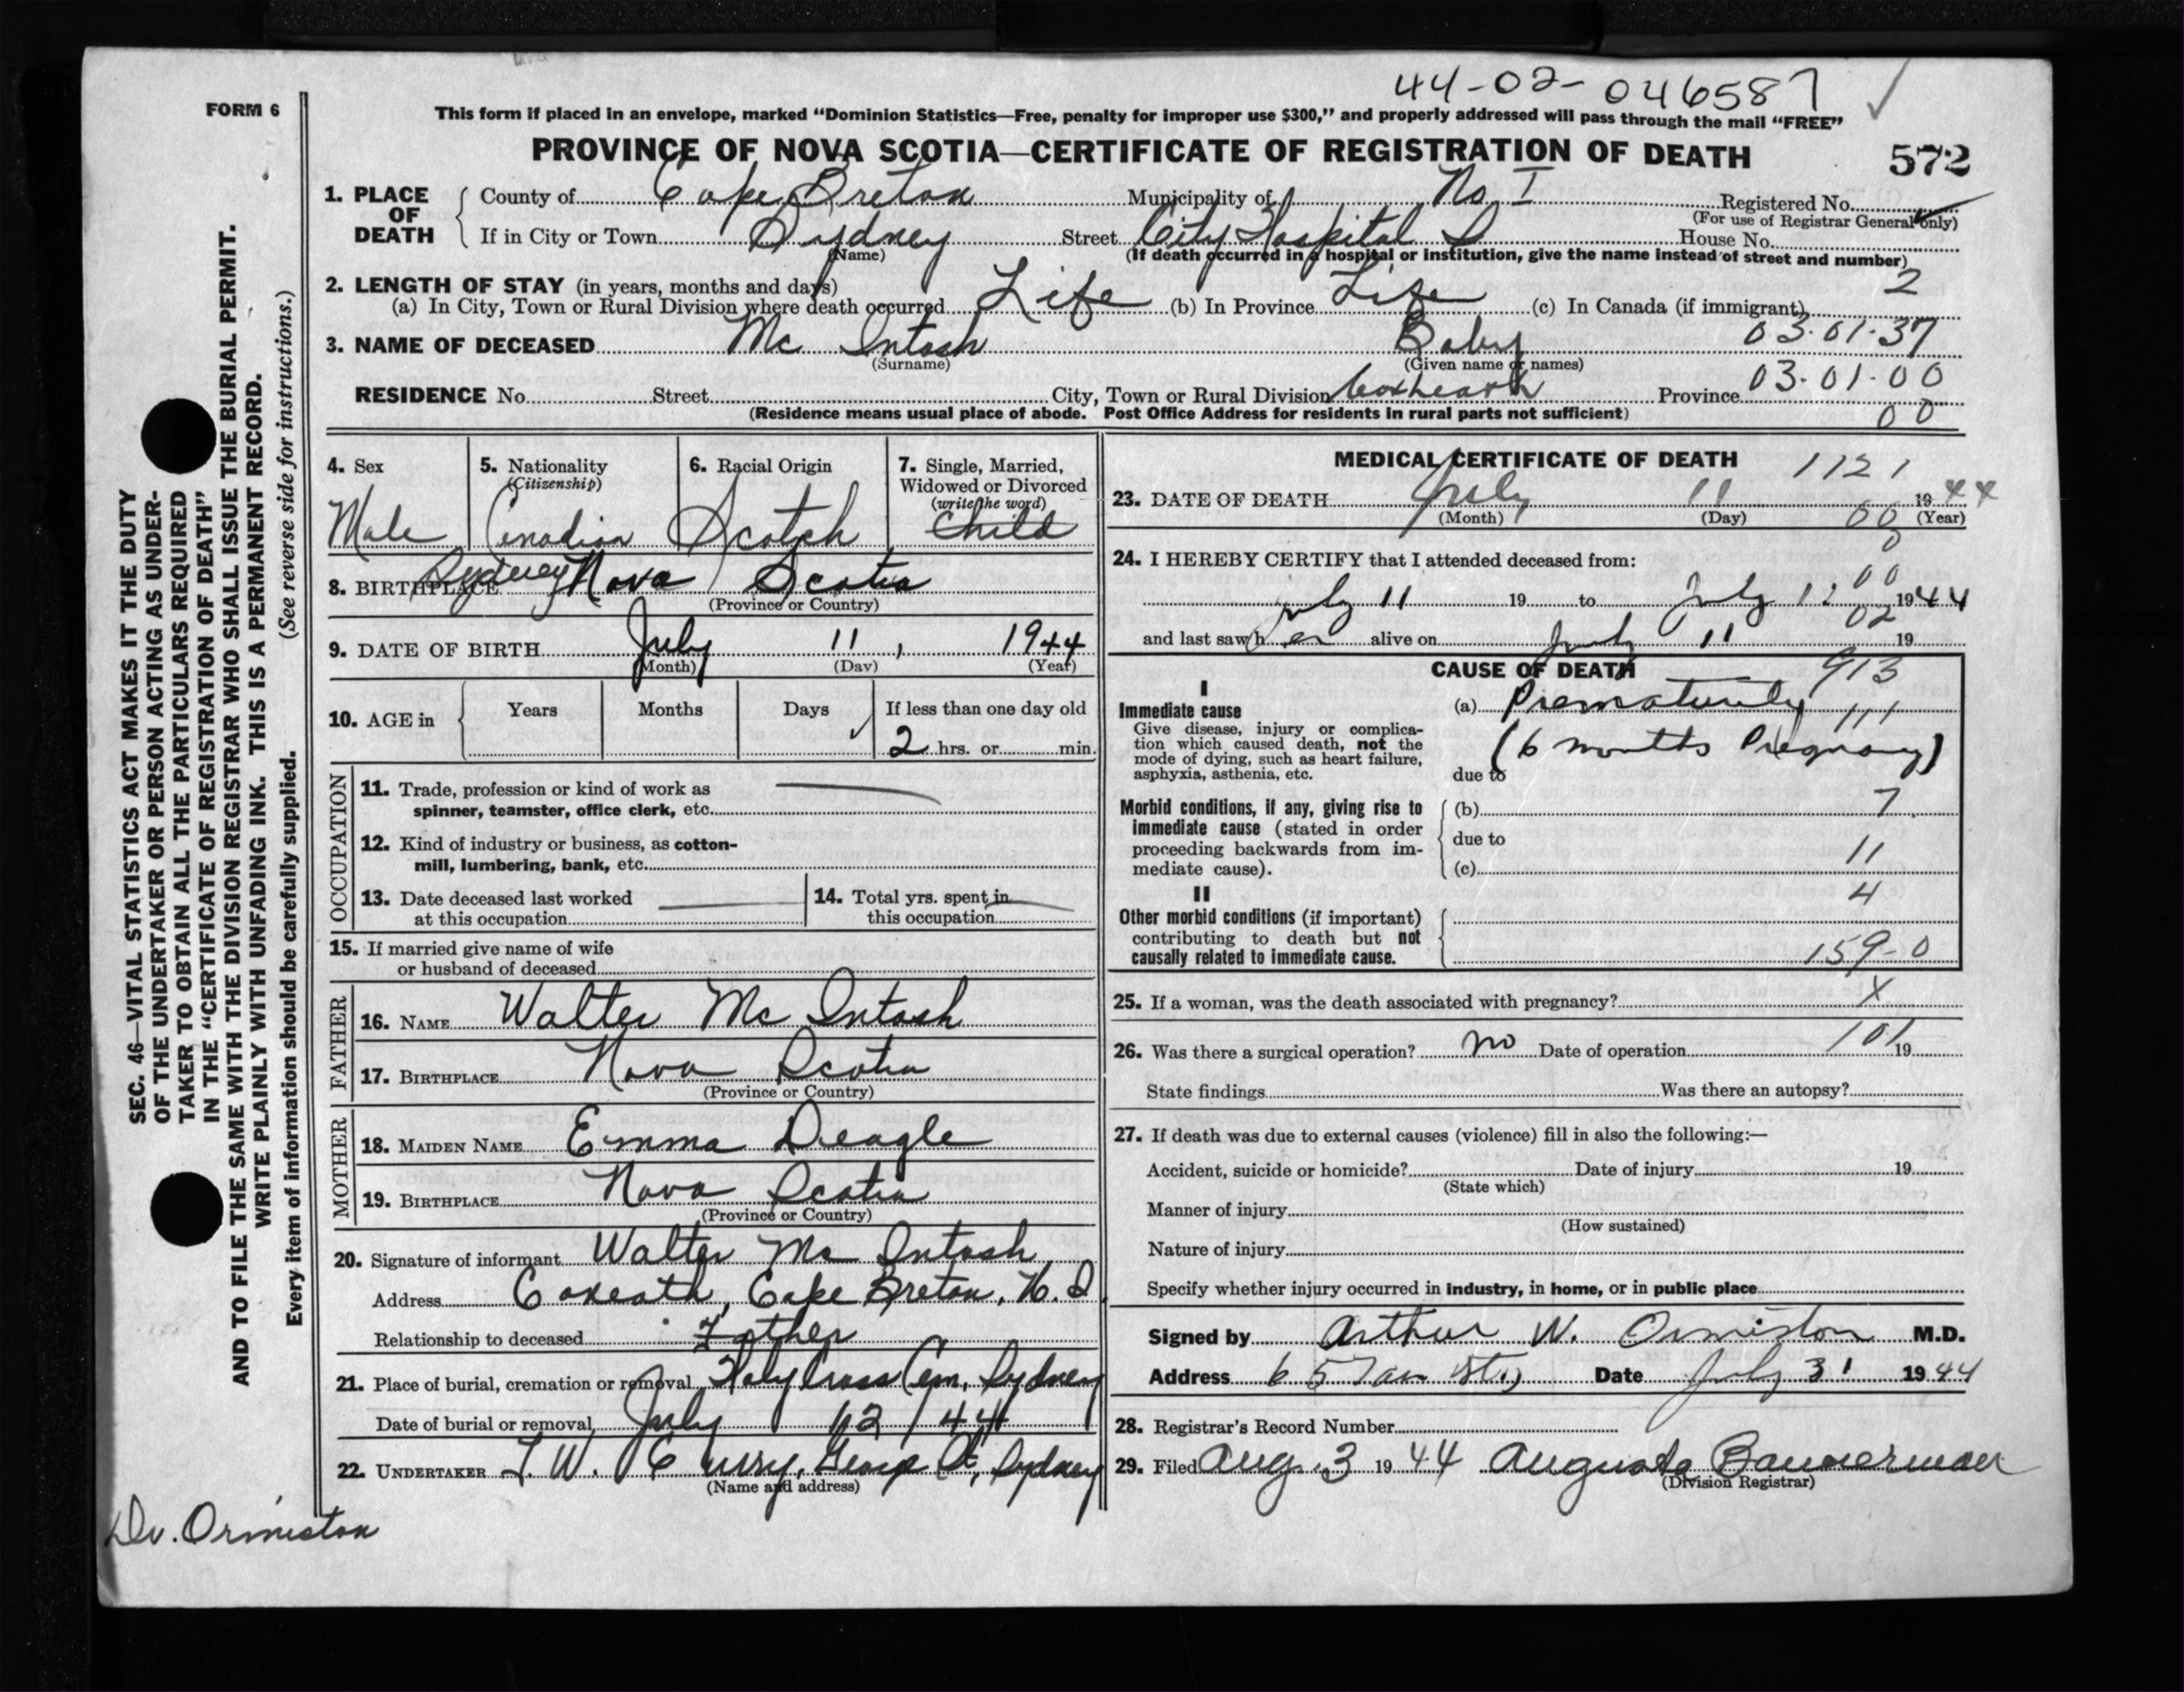 44-02-046587
FORM 6
This form if placed in an envelope, marked "Dominion Statistics—Free, penalty for improper use $300," and properly addressed will pass through the mail "FREE"
PROVINCE OF NOVA SCOTIA—CERTIFICATE OF REGISTRATION OF DEATH
572
1. PLACE OF DEATH
County of Cape Breton Municipality of No I Registered No.
(For use of Registrar General only)
If in City or Town Sydney Street City Hospital House No.
(Name) (If death occurred in a hospital or institution, give the name instead of street and number)
2
2. LENGTH OF STAY (in years, months and days)
(a) In City, Town or Rural Division where death occurred Life (b) In Province Life (c) In Canada (if immigrant)
3. NAME OF DECEASED Mc Intosh Baby 03.01.37
(Surname) (Given name or names)
RESIDENCE No. Street City, Town or Rural Division Coxheath Province 03.01.00
(Residence means usual place of abode. Post Office Address for residents in rural parts not sufficient) 00
4. Sex
Male
5. Nationality
(Citizenship)
Canadian
6. Racial Origin
Scotch
7. Single, Married,
Widowed or Divorced
(write the word)
Child
8. BIRTHPLACE Sydney Nova Scotia
(Province or Country)
9. DATE OF BIRTH July 11, 1944
(Month) (Day) (Year)
10. AGE in Years Months Days If less than one day old
2 hrs. or min.
OCCUPATION
11. Trade, profession or kind of work as
spinner, teamster, office clerk, etc.
12. Kind of industry or business, as cotton-
mill, lumbering, bank, etc.
13. Date deceased last worked
at this occupation
14. Total yrs. spent in
this occupation
15. If married give name of wife
or husband of deceased
FATHER
16. NAME Walter Mc Intosh
17. BIRTHPLACE Nova Scotia
(Province or Country)
MOTHER
18. MAIDEN NAME Emma Deagle
19. BIRTHPLACE Nova Scotia
(Province or Country)
20. Signature of informant Walter Mc Intosh
Address Coxeath, Cape Breton, N.S
Relationship to deceased Father
21. Place of burial, cremation or removal Holy Cross Cem, Sydney
Date of burial or removal July 12/44
22. UNDERTAKER T. W. Curry, George St, Sydney
(Name and address)
MEDICAL CERTIFICATE OF DEATH 1121
23. DATE OF DEATH July 11 1944
(Month) (Day) 00 (Year)
0
24. I HEREBY CERTIFY that I attended deceased from:
00
July 11 19 to July 1944
02
and last saw h er alive on July 11 19
CAUSE OF DEATH 913
I
Immediate cause
Give disease, injury or complica-
tion which caused death, not the
mode of dying, such as heart failure,
asphyxia, asthenia, etc.
(a) Prematurity 111
(6 months Pregnancy)
due to
Morbid conditions, if any, giving rise to
immediate cause (stated in order
proceeding backwards from im-
mediate cause).
(b) 7
due to
11
(c)
4
II
Other morbid conditions (if important)
contributing to death but not
causally related to immediate cause.
159-0
25. If a woman, was the death associated with pregnancy? X
26. Was there a surgical operation? no Date of operation 101 19
State findings Was there an autopsy?
27. If death was due to external causes (violence) fill in also the following:—
Accident, suicide or homicide? Date of injury 19
(State which)
Manner of injury
(How sustained)
Nature of injury
Specify whether injury occurred in industry, in home, or in public place
Signed by Arthur W. Ormiston M.D.
Address 65 St., Date July 31 1944
28. Registrar's Record Number
29. Filed Aug. 3 1944 Augusta Bannerman
(Division Registrar)
SEC. 46—VITAL STATISTICS ACT MAKES IT THE DUTY
OF THE UNDERTAKER OR PERSON ACTING AS UNDER-
TAKER TO OBTAIN ALL THE PARTICULARS REQUIRED
IN THE "CERTIFICATE OF REGISTRATION OF DEATH"
AND TO FILE THE SAME WITH THE DIVISION REGISTRAR WHO SHALL ISSUE THE BURIAL PERMIT.
WRITE PLAINLY WITH UNFADING INK. THIS IS A PERMANENT RECORD.
Every item of information should be carefully supplied. (See reverse side for instructions.)
Dr. Ormiston